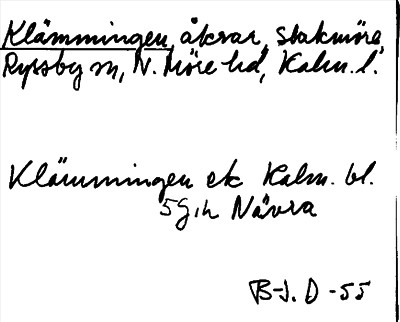 Klämmingen, åkrar, Stakmöre,
Ryssby sn, N. Möre hd, Kalm. l.
Klämmingen ek Kalm. bl.
5g,h Nävra
B-J. D -55